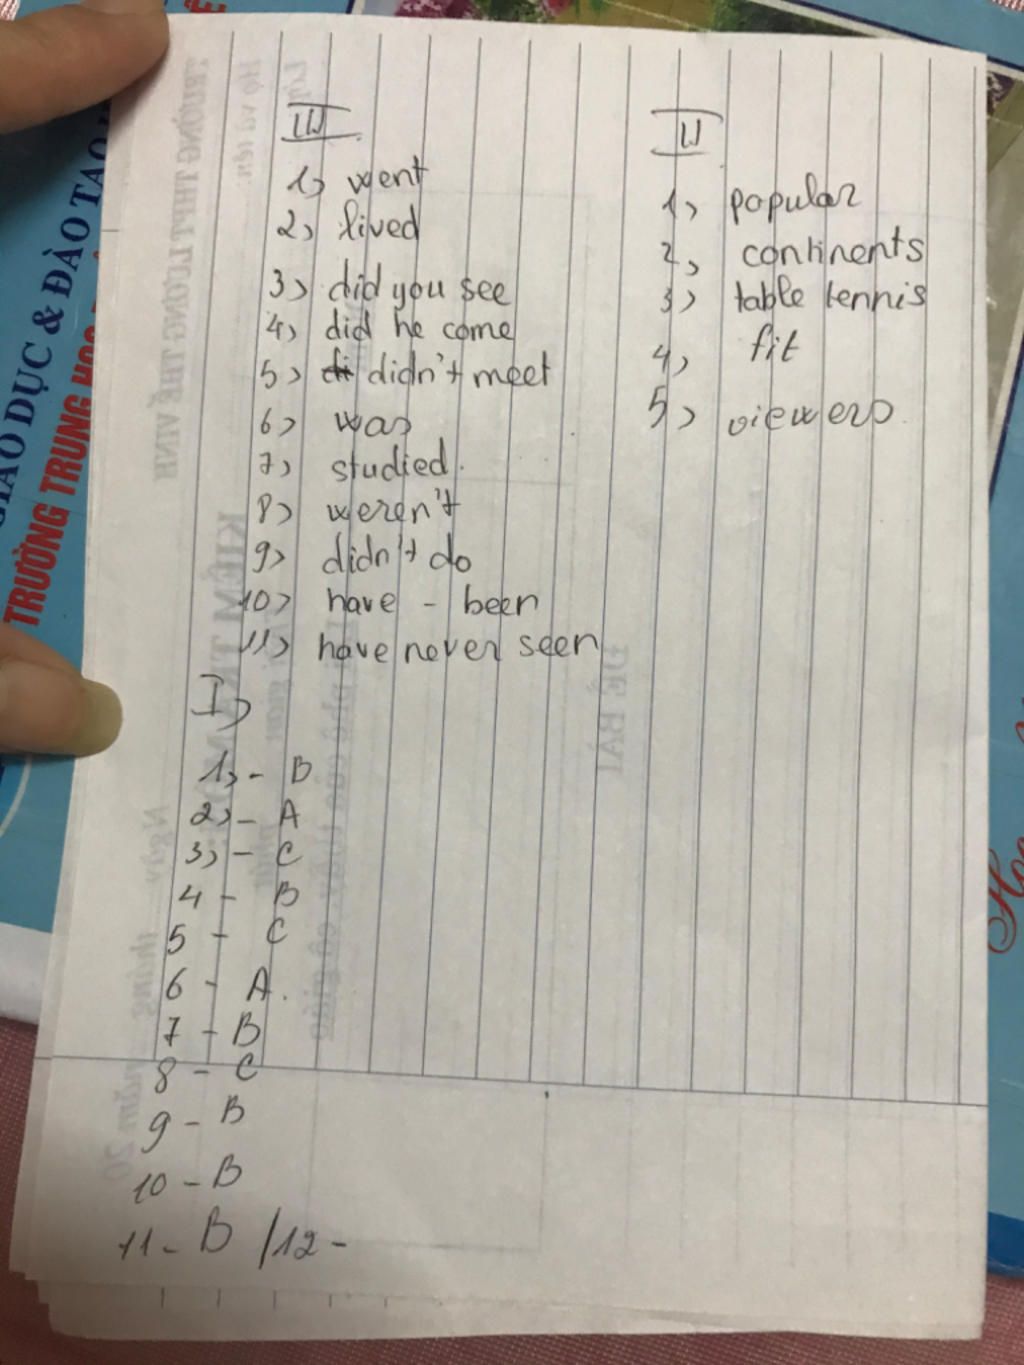 III
1) went
2) lived
3) did you see
4) did he come
5) didn't meet
6) was
7) studied.
8) weren't
9) didn't do
10) have - been
11) have never seen
II
1) popular
2) continents
3) table tennis
4) fit
5) viewers
I)
1) - B
2) - A
3) - C
4 - B
5 - C
6 - A.
7 - B
8 - C
9 - B
10 - B
11 - B /12 -
GIÁO DỤC & ĐÀO TẠO
TRƯỜNG TRUNG HỌC
TRƯỜNG THPT LƯƠNG THẾ VINH
Họ và tên:
Lớp
KIỂM TRA
ĐỀ BÀI
Ngày tháng năm 20